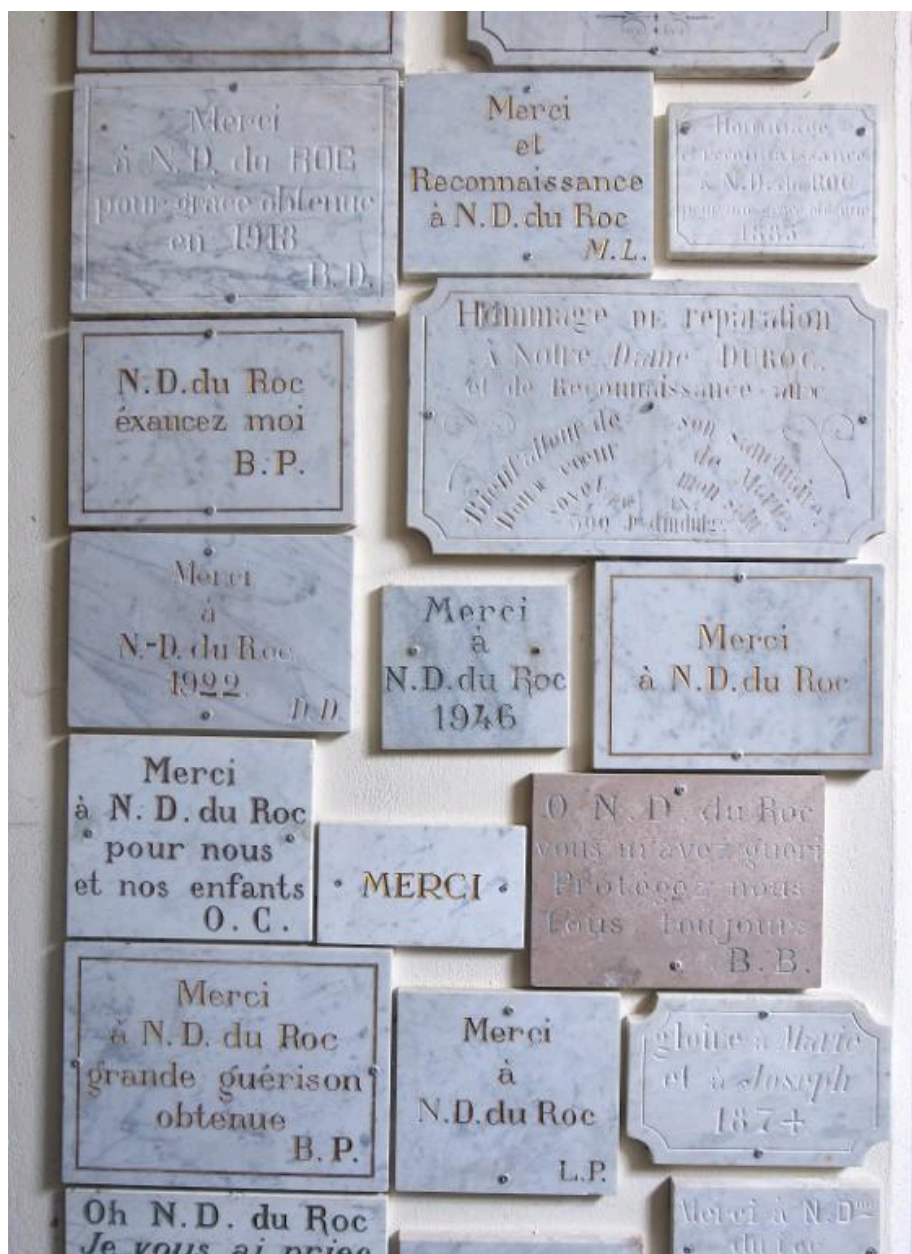 Merci
à N. D. du ROC
pour grâce obtenue
en 1918
B. D.
Merci
et
Reconnaissance
à N. D. du Roc
M. L.
Hommage
et reconnaissance
à N. D. du ROC
pour une grâce obtenue
1885
N. D. du Roc
éxaucez moi
B. P.
Hommage DE reparation
à Notre Dame DUROC.
et de Reconnaissance
Doux coeur
soyez
son sanctuaire.
de Marie
mon salut
300 J d'indulg
Merci
à
N.-D. du Roc
1922
D. D.
Merci
à
N. D. du Roc
1946
Merci
à N. D. du Roc
Merci
à N. D. du Roc
pour nous
et nos enfants
O. C.
MERCI
O N. D. du Roc
vous m'avez guéri
Protégez nous
tous toujours
B. B.
Merci
à N. D. du Roc
grande guérison
obtenue
B. P.
Merci
à
N. D. du Roc
L. P.
gloire à Marie
et à Joseph
1874
Oh N. D. du Roc
Je vous ai priée
Merci à N. Dme
du Roc